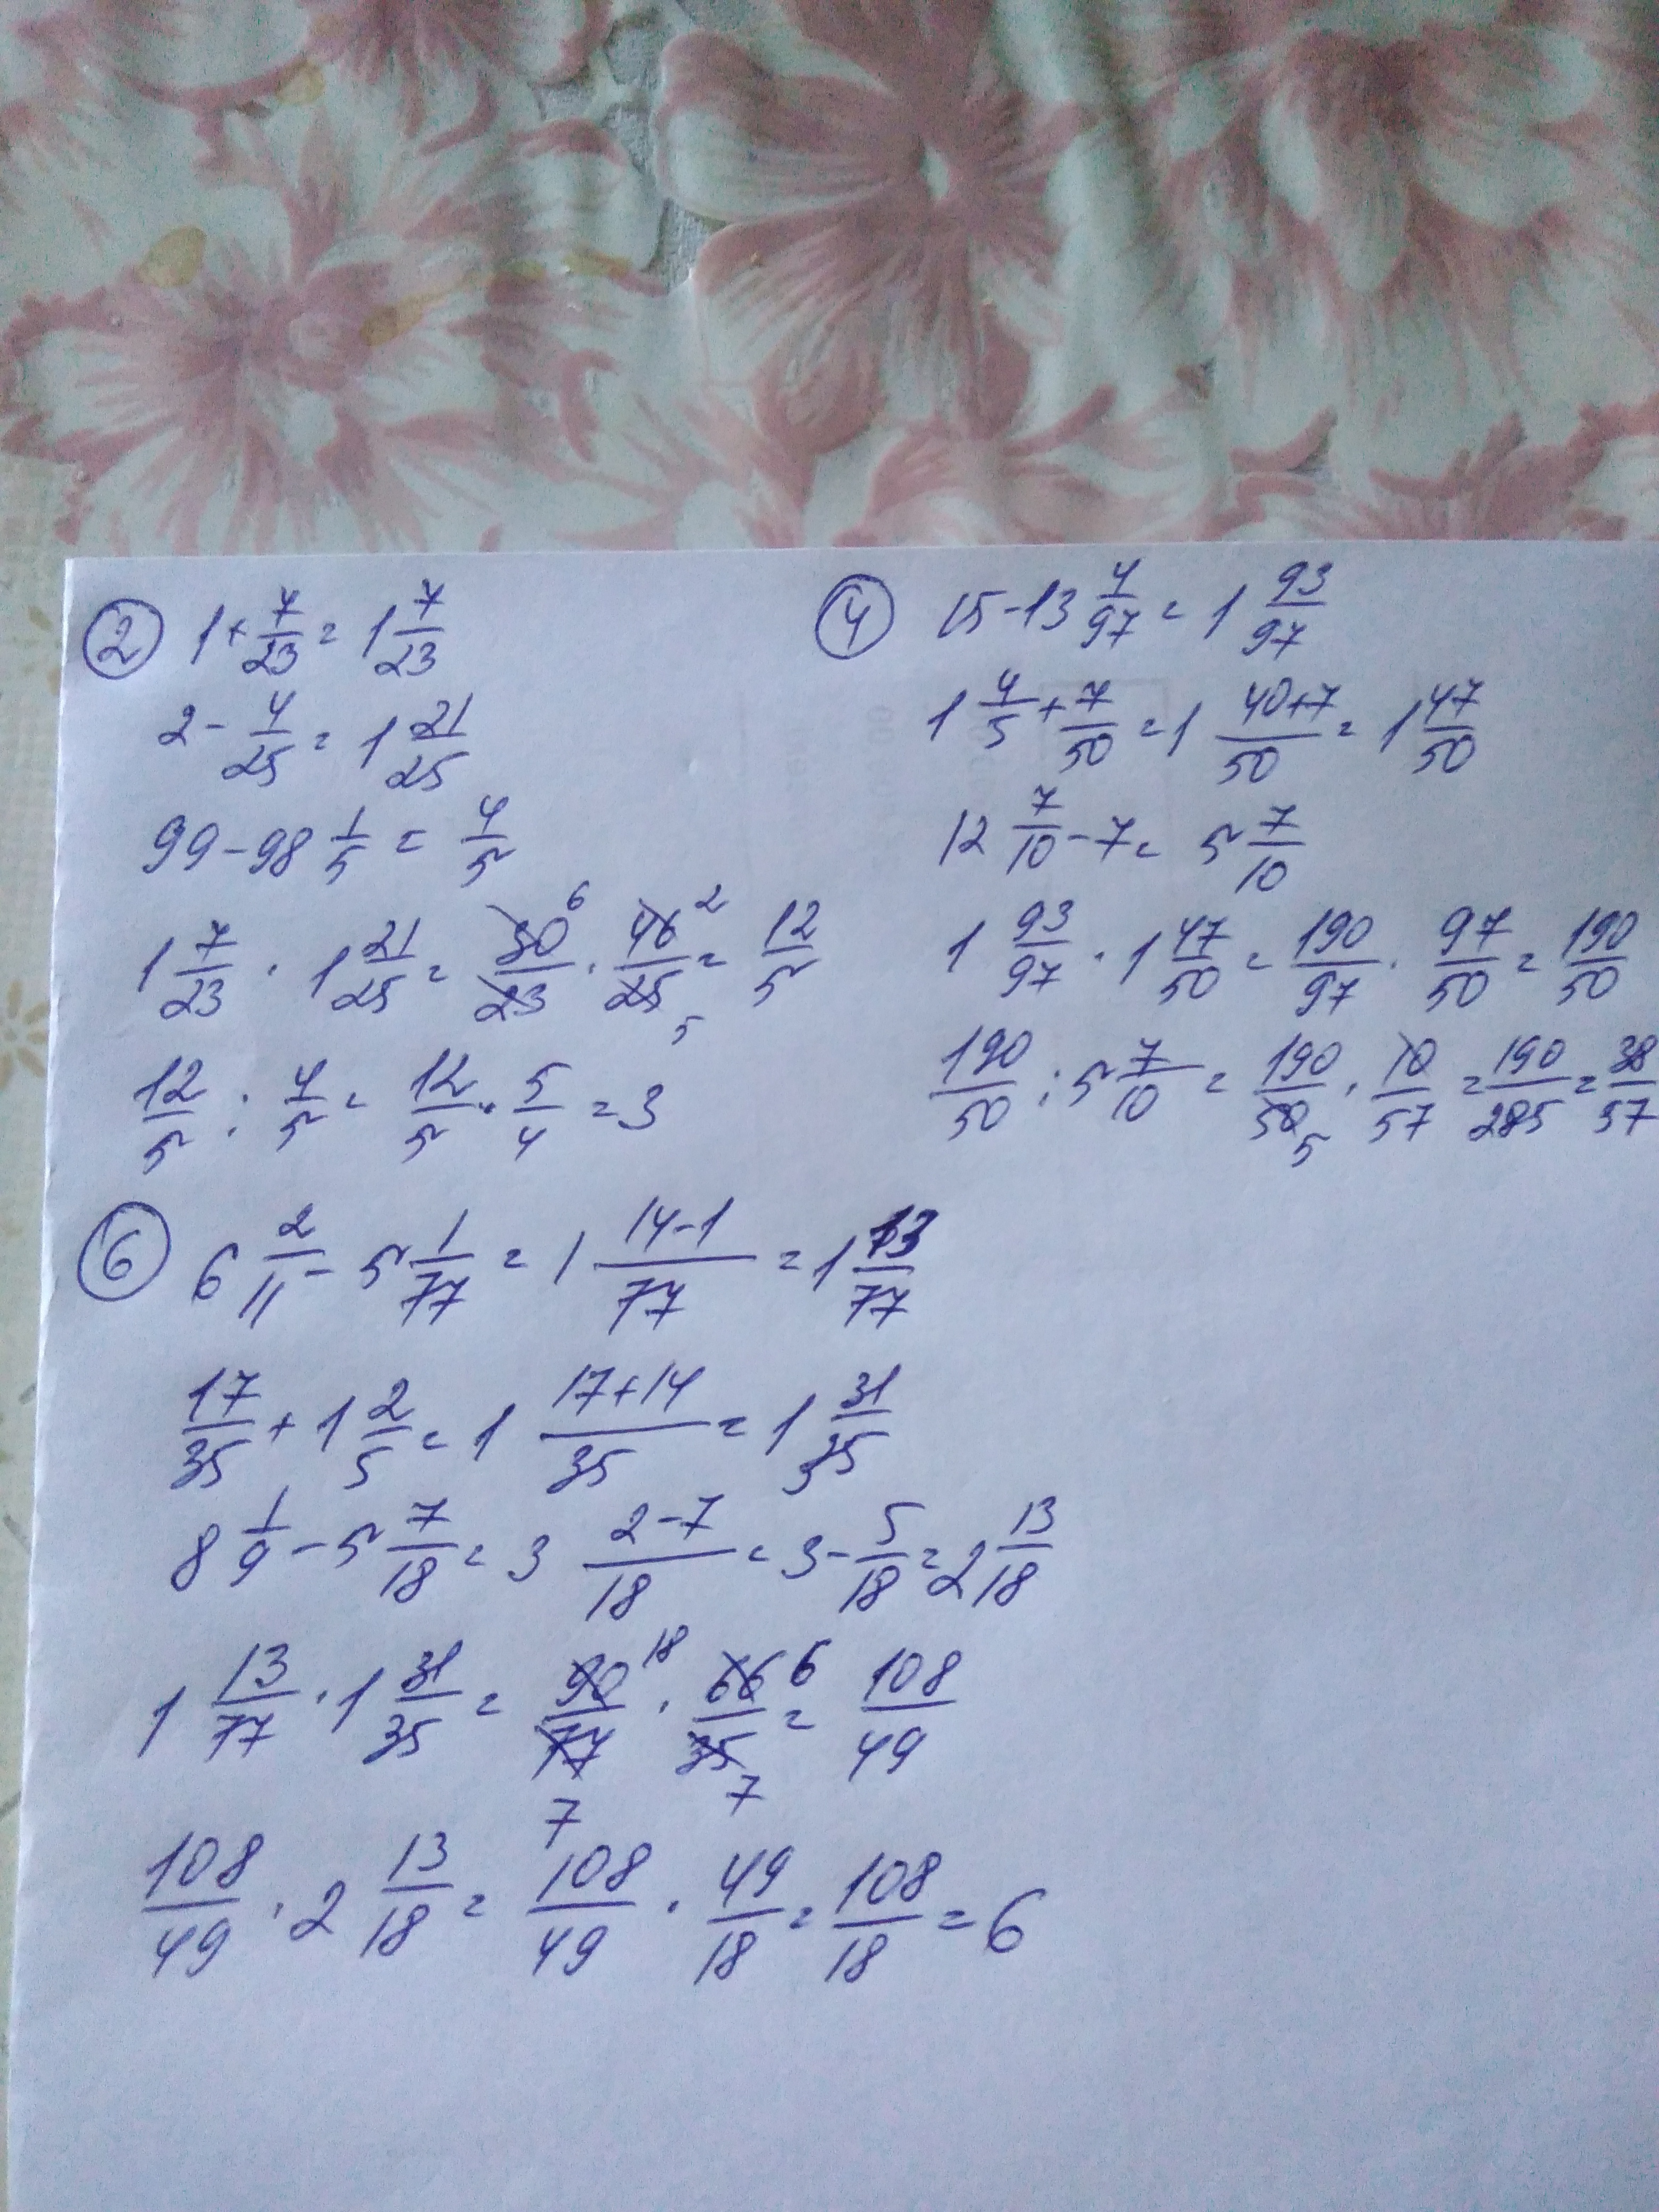 ② 1 + 7/23 = 1 7/23
2 - 4/25 = 1 21/25
99 - 98 1/5 = 4/5
1 7/23 · 1 21/25 = 30 6/23 · 46 2/25 5 = 12/5
12/5 : 4/5 = 12/5 · 5/4 = 3
④ 15 - 13 4/97 = 1 93/97
1 4/5 + 7/50 = 1 40+7/50 = 1 47/50
12 7/10 - 7 = 5 7/10
1 93/97 · 1 47/50 = 190/97 · 97/50 = 190/50
190/50 : 5 7/10 = 190/50 5 · 10/57 = 190/285 = 38/57
⑥ 6 2/11 - 5 1/77 = 1 14-1/77 = 1 13/77
17/35 + 1 2/5 = 1 17+14/35 = 1 31/35
8 1/9 - 5 7/18 = 3 2-7/18 = 3 - 5/18 = 2 13/18
1 13/77 · 1 31/35 = 90 18/77 7 · 66 6/35 7 = 108/49
108/49 · 2 13/18 = 108/49 · 49/18 = 108/18 = 6